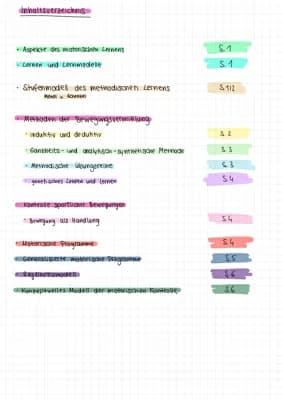 Inhaltsverzeichnis
· Aspekte des motorischen Lernens S.1
· Lernen und Lernmodelle S.1
· Stufenmodell des methodischen Lernens S.1/2
Meinel & Schnabel
· Methoden der Bewegungsvermittlung
· induktiv und deduktiv S.2
· Ganzheits- und analytisch-synthetische Methode S.3
· Methodische Übungsreihe S.3
· genetisches Lehren und Lernen S.4
Kontrolle sportlicher Bewegungen
· Bewegung als Handlung S.4
· Motorische Programme S.4
· Generalisierte motorische Programme S.5
· Regelkreismodell S.6
· Konzeptuelles Modell der motorischen Kontrolle S.6